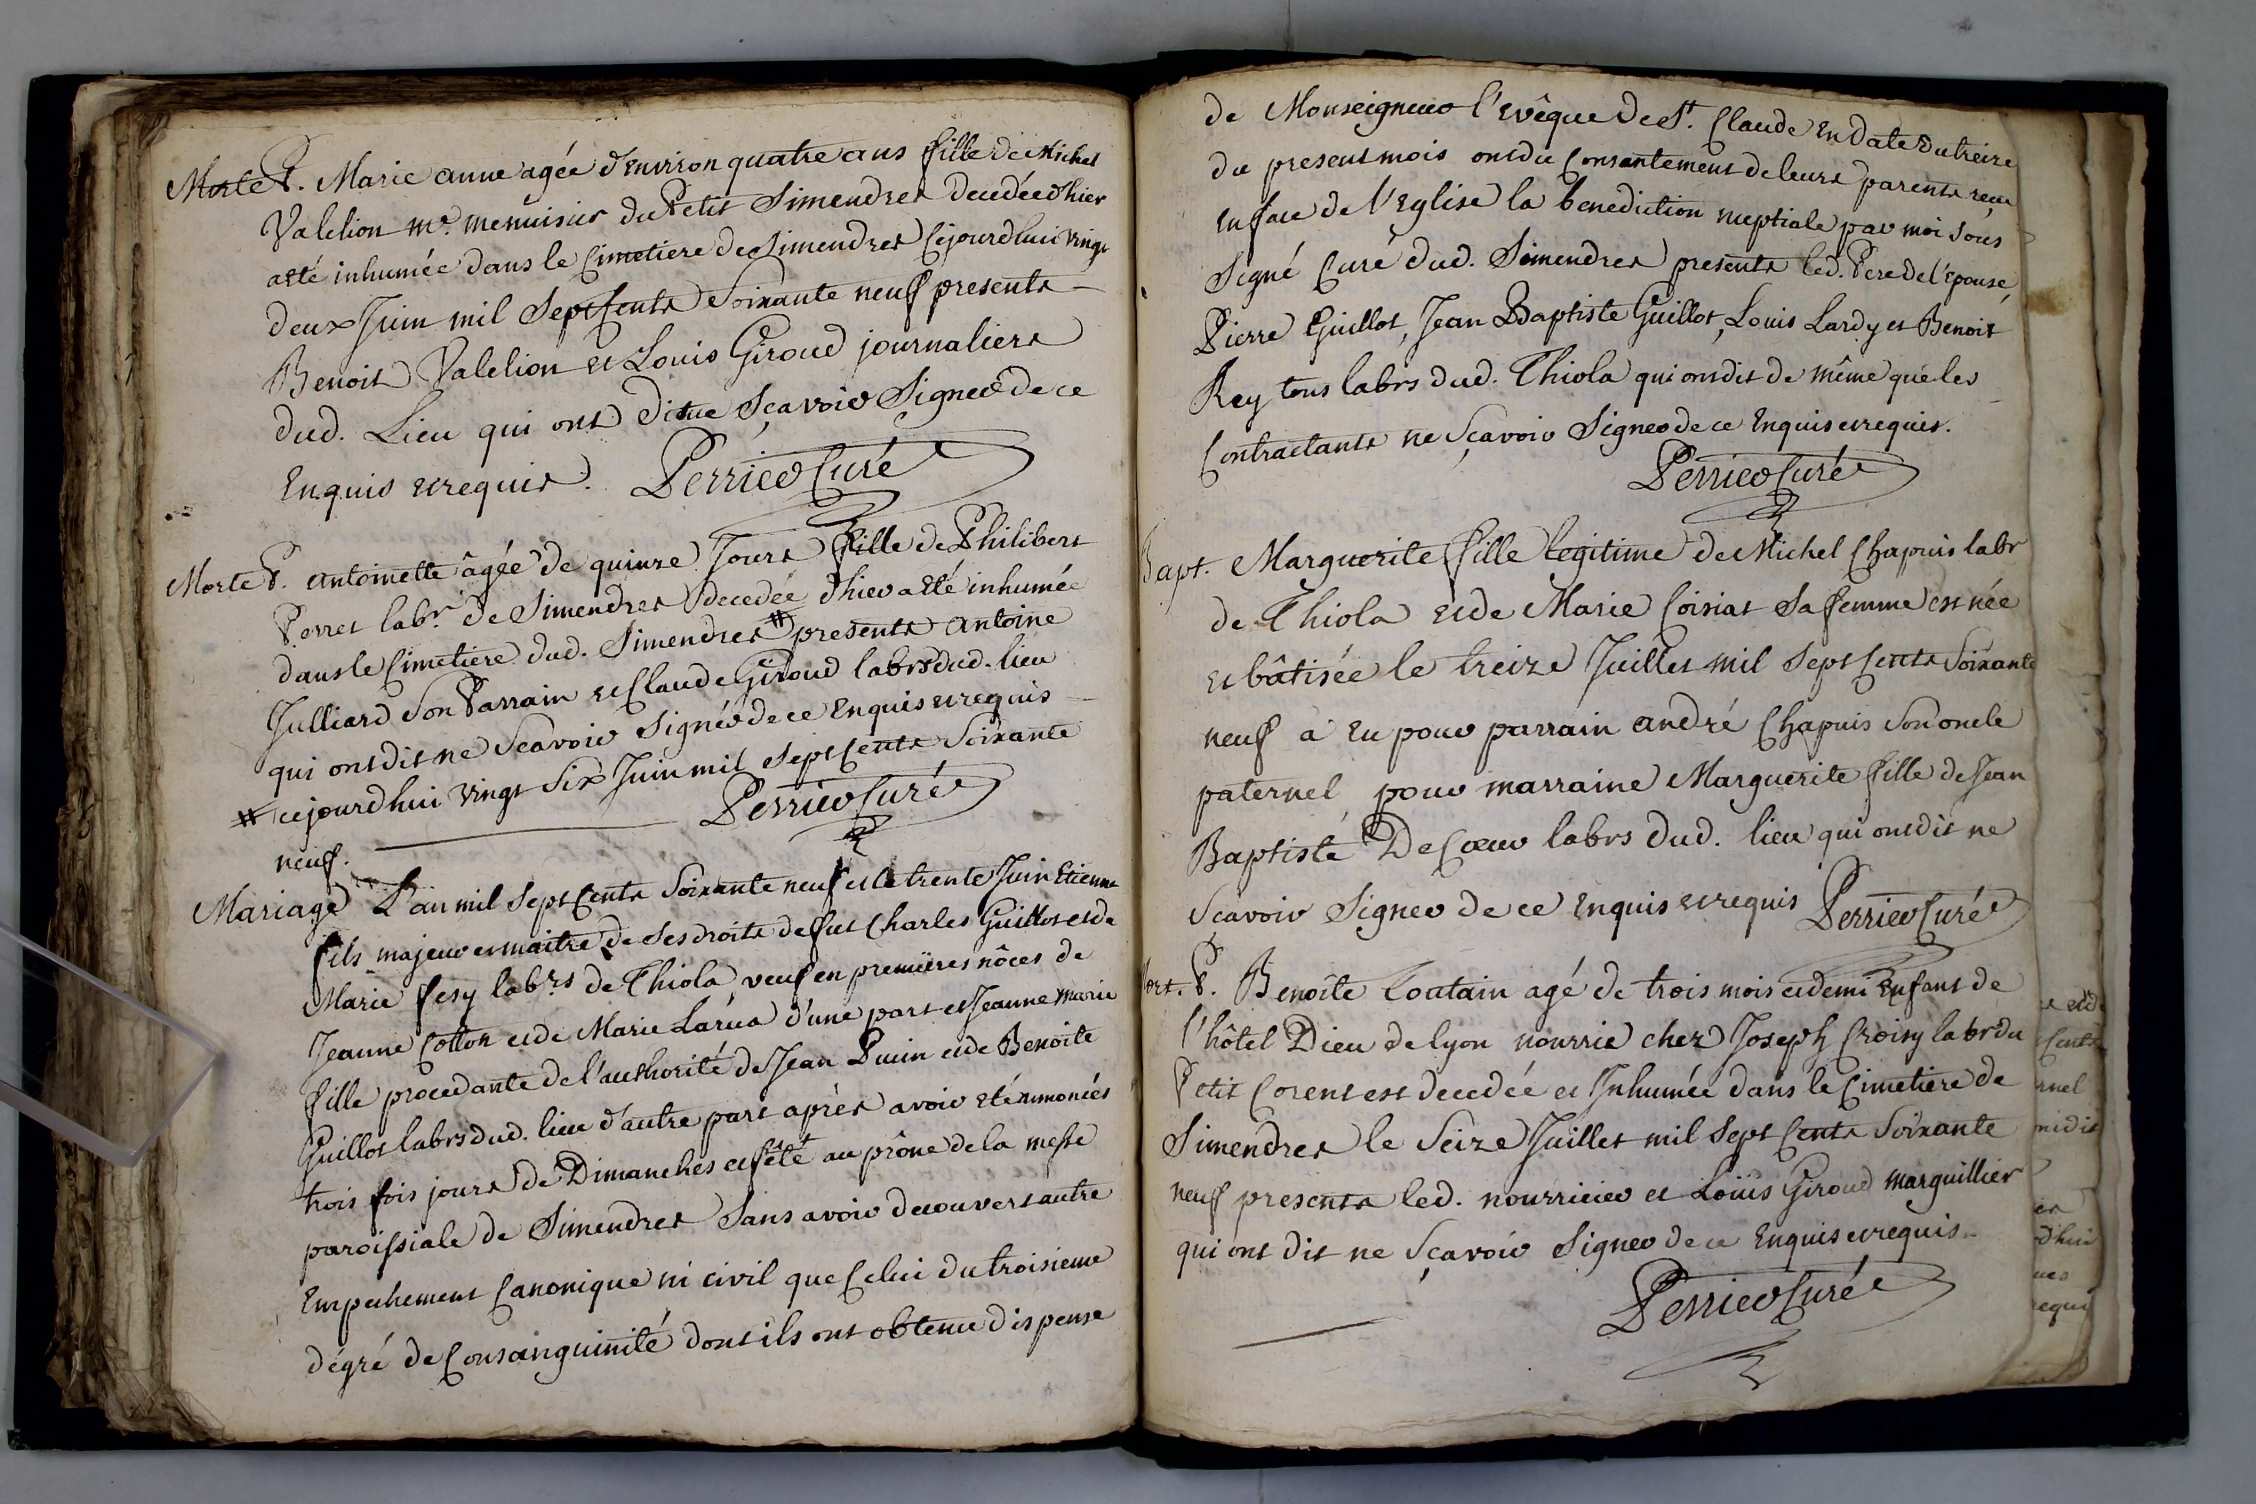 Morte P. Marie anne agée d'Environ quatre ans fille de Michel
Valelion me. menuisier du Petit Simendres decedée d'hier
a Eté inhumée dans le Cimetiere de Simendres Cejourdhui vingt
deux Juin mil Sept Cents Soixante neuf presents
Benoit Valelion et Louis Giroud journaliers
dud. Lieu qui ont dit ne Sçavoir Signer de ce
Enquis et requis. Perrier Curé
Morte P. antoinette âgée de quinze Jours fille de Philibert
Perret labr. de Simendres decedée d'hier a Eté inhumée
dans le Cimetiere dud. Simendres # presents antoine
Julliard Son Parrain et Claude Giroud labrs dud. lieu
qui ont dit ne Scavoir Signér de ce Enquis et requis
# cejourdhui vingt Six Juin mil Sept Cents Soixante
neuf. Perrier Curé
Mariage L'an mil Sept Cents Soixante neuf et le trente Juin Etienne
fils majeur et maitre de Ses droits de fut Charles Guillot et de
Marie fesy labrs de Thiola, veuf en premiieres nôces de
Jeanne Cotton et de Marie Larüa d'une part et Jeanne Marie
fille procedante de l'authorité de Jean Puvin et de Benoite
Guillot labrs dud. lieu d'autre part après avoir Eté annoncés
trois fois jours de Dimanches et fête au prône de la messe
paroissiale de Simendres Sans avoir decouvert autre
Empechement Canonique ni civil que Celui du troisieme
dégré de Consanguinité dont ils ont obtenu dispense
de Monseigneur l'Evêque de St. Claude En Date du treize
du present mois ont du Consentement de leurs parents reçu
En face de l'Eglise la benediction nuptiale par moi Sous
Signé Curé dud. Simendres presents led. Pere de l'Epouse,
Pierre Guillot, Jean Baptiste Guillot, Louis Lardy et Benoit
Rey tous labrs dud. Thiola qui ont dit de même que les
Contractants ne Sçavoir Signer de ce Enquis et requis.
Perrier Curé
Bapt. Marguerite fille legitime de Michel Chapuis labr
de Thiola et de Marie Coisiat Sa femme est née
et bâtisée le treize Juillet mil Sept Cents Soixante
neuf a Eu pour parrain andré Chapuis Son oncle
paternel pour marraine Marguerite fille de Jean
Baptiste De Cœur labrs dud. lieu qui ont dit ne
Scavoir Signer de ce Enquis et requis Perrier Curé
Mort. P. Benoite Loutain agé de trois mois et demi Enfant de
l'hôtel Dieu de lyon nourrie chez Joseph Croisy labr du
Petit Corent est decedée et Inhumée dans le Cimetiere de
Simendres le Seize Juillet mil Sept Cents Soixante
neuf presents led. nourricier et Loüis Giroud marguillier
qui ont dit ne Sçavoir Signer de ce Enquis et requis.
Perrier Curé